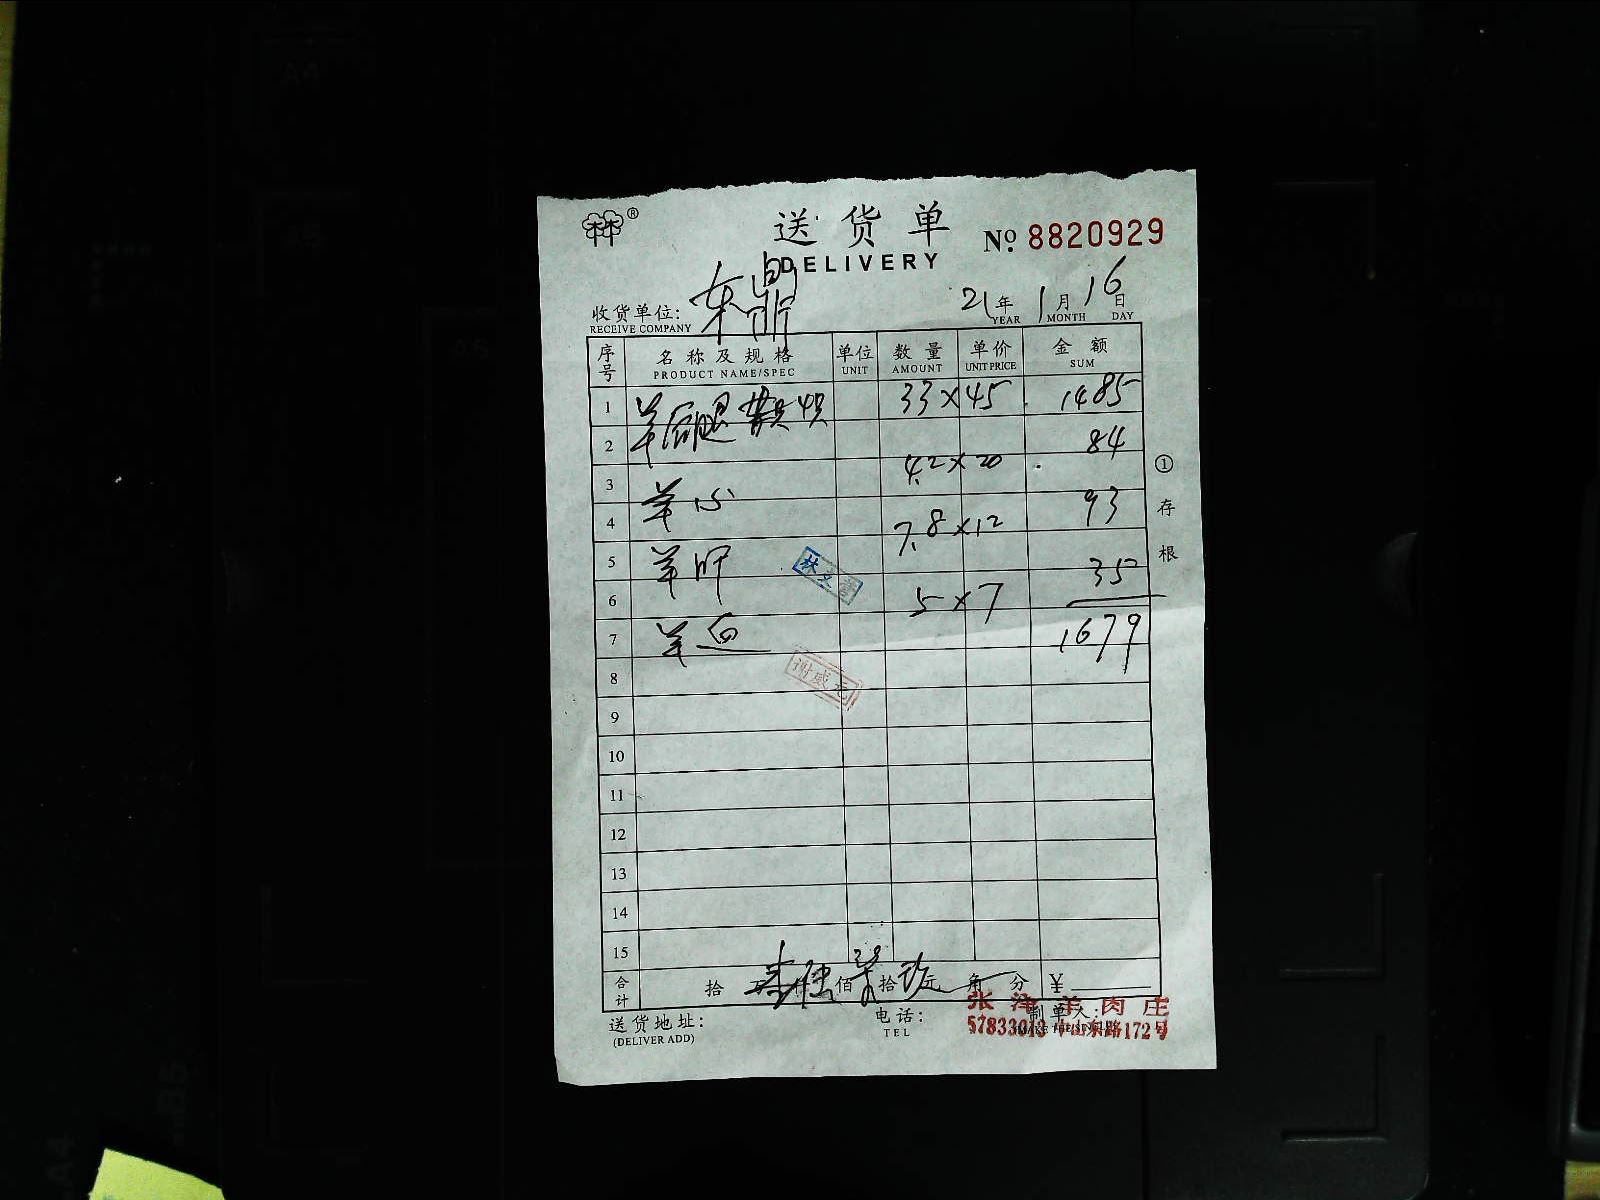 林林®
送货单
DELIVERY
№ 8820929
收货单位: 东鼎
RECEIVE COMPANY
21年 1月 16日
YEAR MONTH DAY
序号 名称及规格 单位 数量 单价 金额
PRODUCT NAME/SPEC UNIT AMOUNT UNIT PRICE SUM
1 羊后腿 33×45 1485
2 84
3 羊心 4.2×20
4 7.8×12 93
5 羊肝
林文
6 5×7 35
7 羊血 1679
谢盛元
8
9
10
11
12
13
14
15
①存根
合计 拾 万 壹仟 陆佰 柒拾 玖元 角 分 ¥
送货地址:
(DELIVER ADD)
电话:
TEL
制单人:
张泽羊肉庄
57833013 中山东路172号